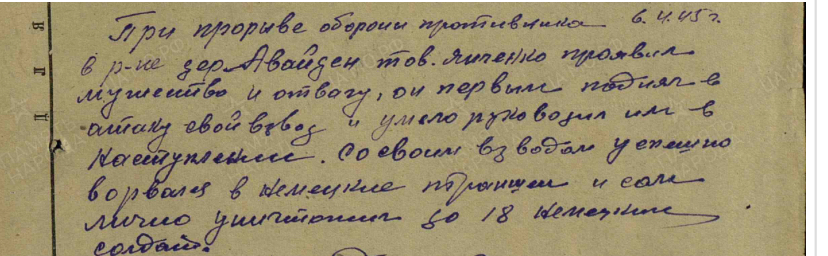 При прорыве обороны противника 6.4.45 г.
в р-не дер. Авайден тов. Яиченко проявил
мужество и отвагу, он первым поднял в
атаку свой взвод и умело руководил им в
наступлении. Со своим взводом успешно
ворвался в немецкие траншеи и сам
лично уничтожил до 18 немецких
солдат.